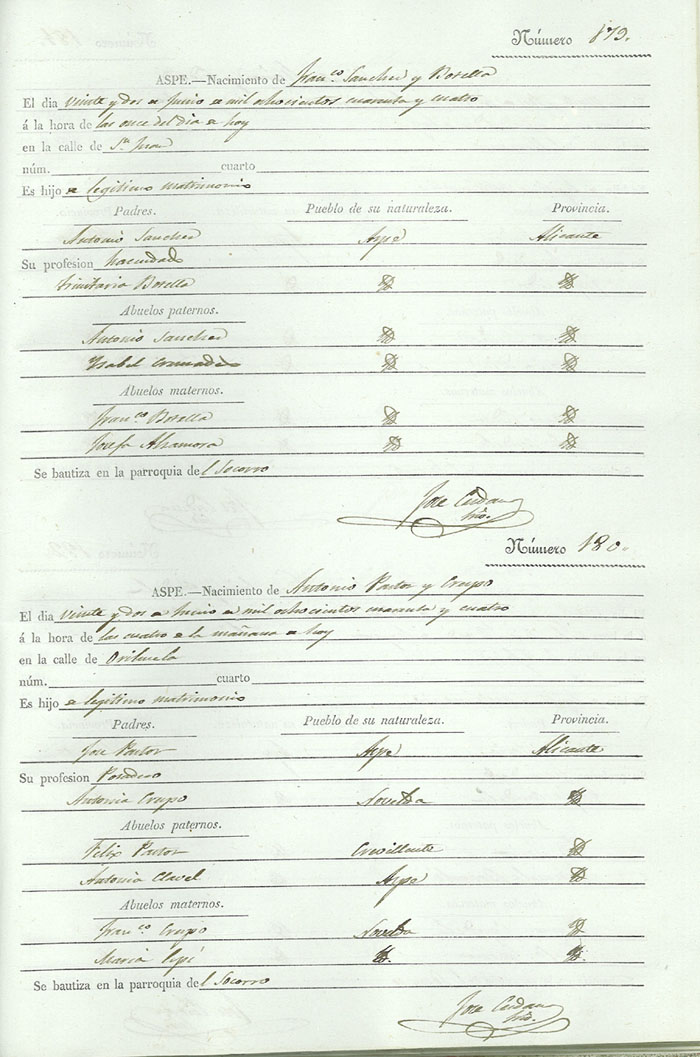 Número 179.
ASPE.—Nacimiento de Fran.co Sanchez y Botella
El dia veinte y dos de Junio de mil ochocientos cuarenta y cuatro
á la hora de las once del dia de hoy
en la calle de Sn. Juan
núm. cuarto
Es hijo de legitimo matrimonio
Padres. Pueblo de su naturaleza. Provincia.
Antonio Sanchez Aspe Alicante
Su profesion hacendado
Trinitaria Botella
Abuelos paternos.
Antonio Sanchez
Ysabel Cremades
Abuelos maternos.
Fran.co Botella
Josefa Alzamora
Se bautiza en la parroquia del Socorro
Jose Cerdan
Número 180.
ASPE.—Nacimiento de Antonio Pastor y Crespo
El dia veinte y dos de Junio de mil ochocientos cuarenta y cuatro
á la hora de las cuatro de la mañana de hoy
en la calle de Orihuela
núm. cuarto
Es hijo de legitimo matrimonio
Padres. Pueblo de su naturaleza. Provincia.
Jose Pastor Aspe Alicante
Su profesion Posadero
Antonia Crespo Novelda
Abuelos paternos.
Felix Pastor Crevillante
Antonia Clavel Aspe
Abuelos maternos.
Fran.co Crespo Novelda
Maria
Se bautiza en la parroquia del Socorro
Jose Cerdan